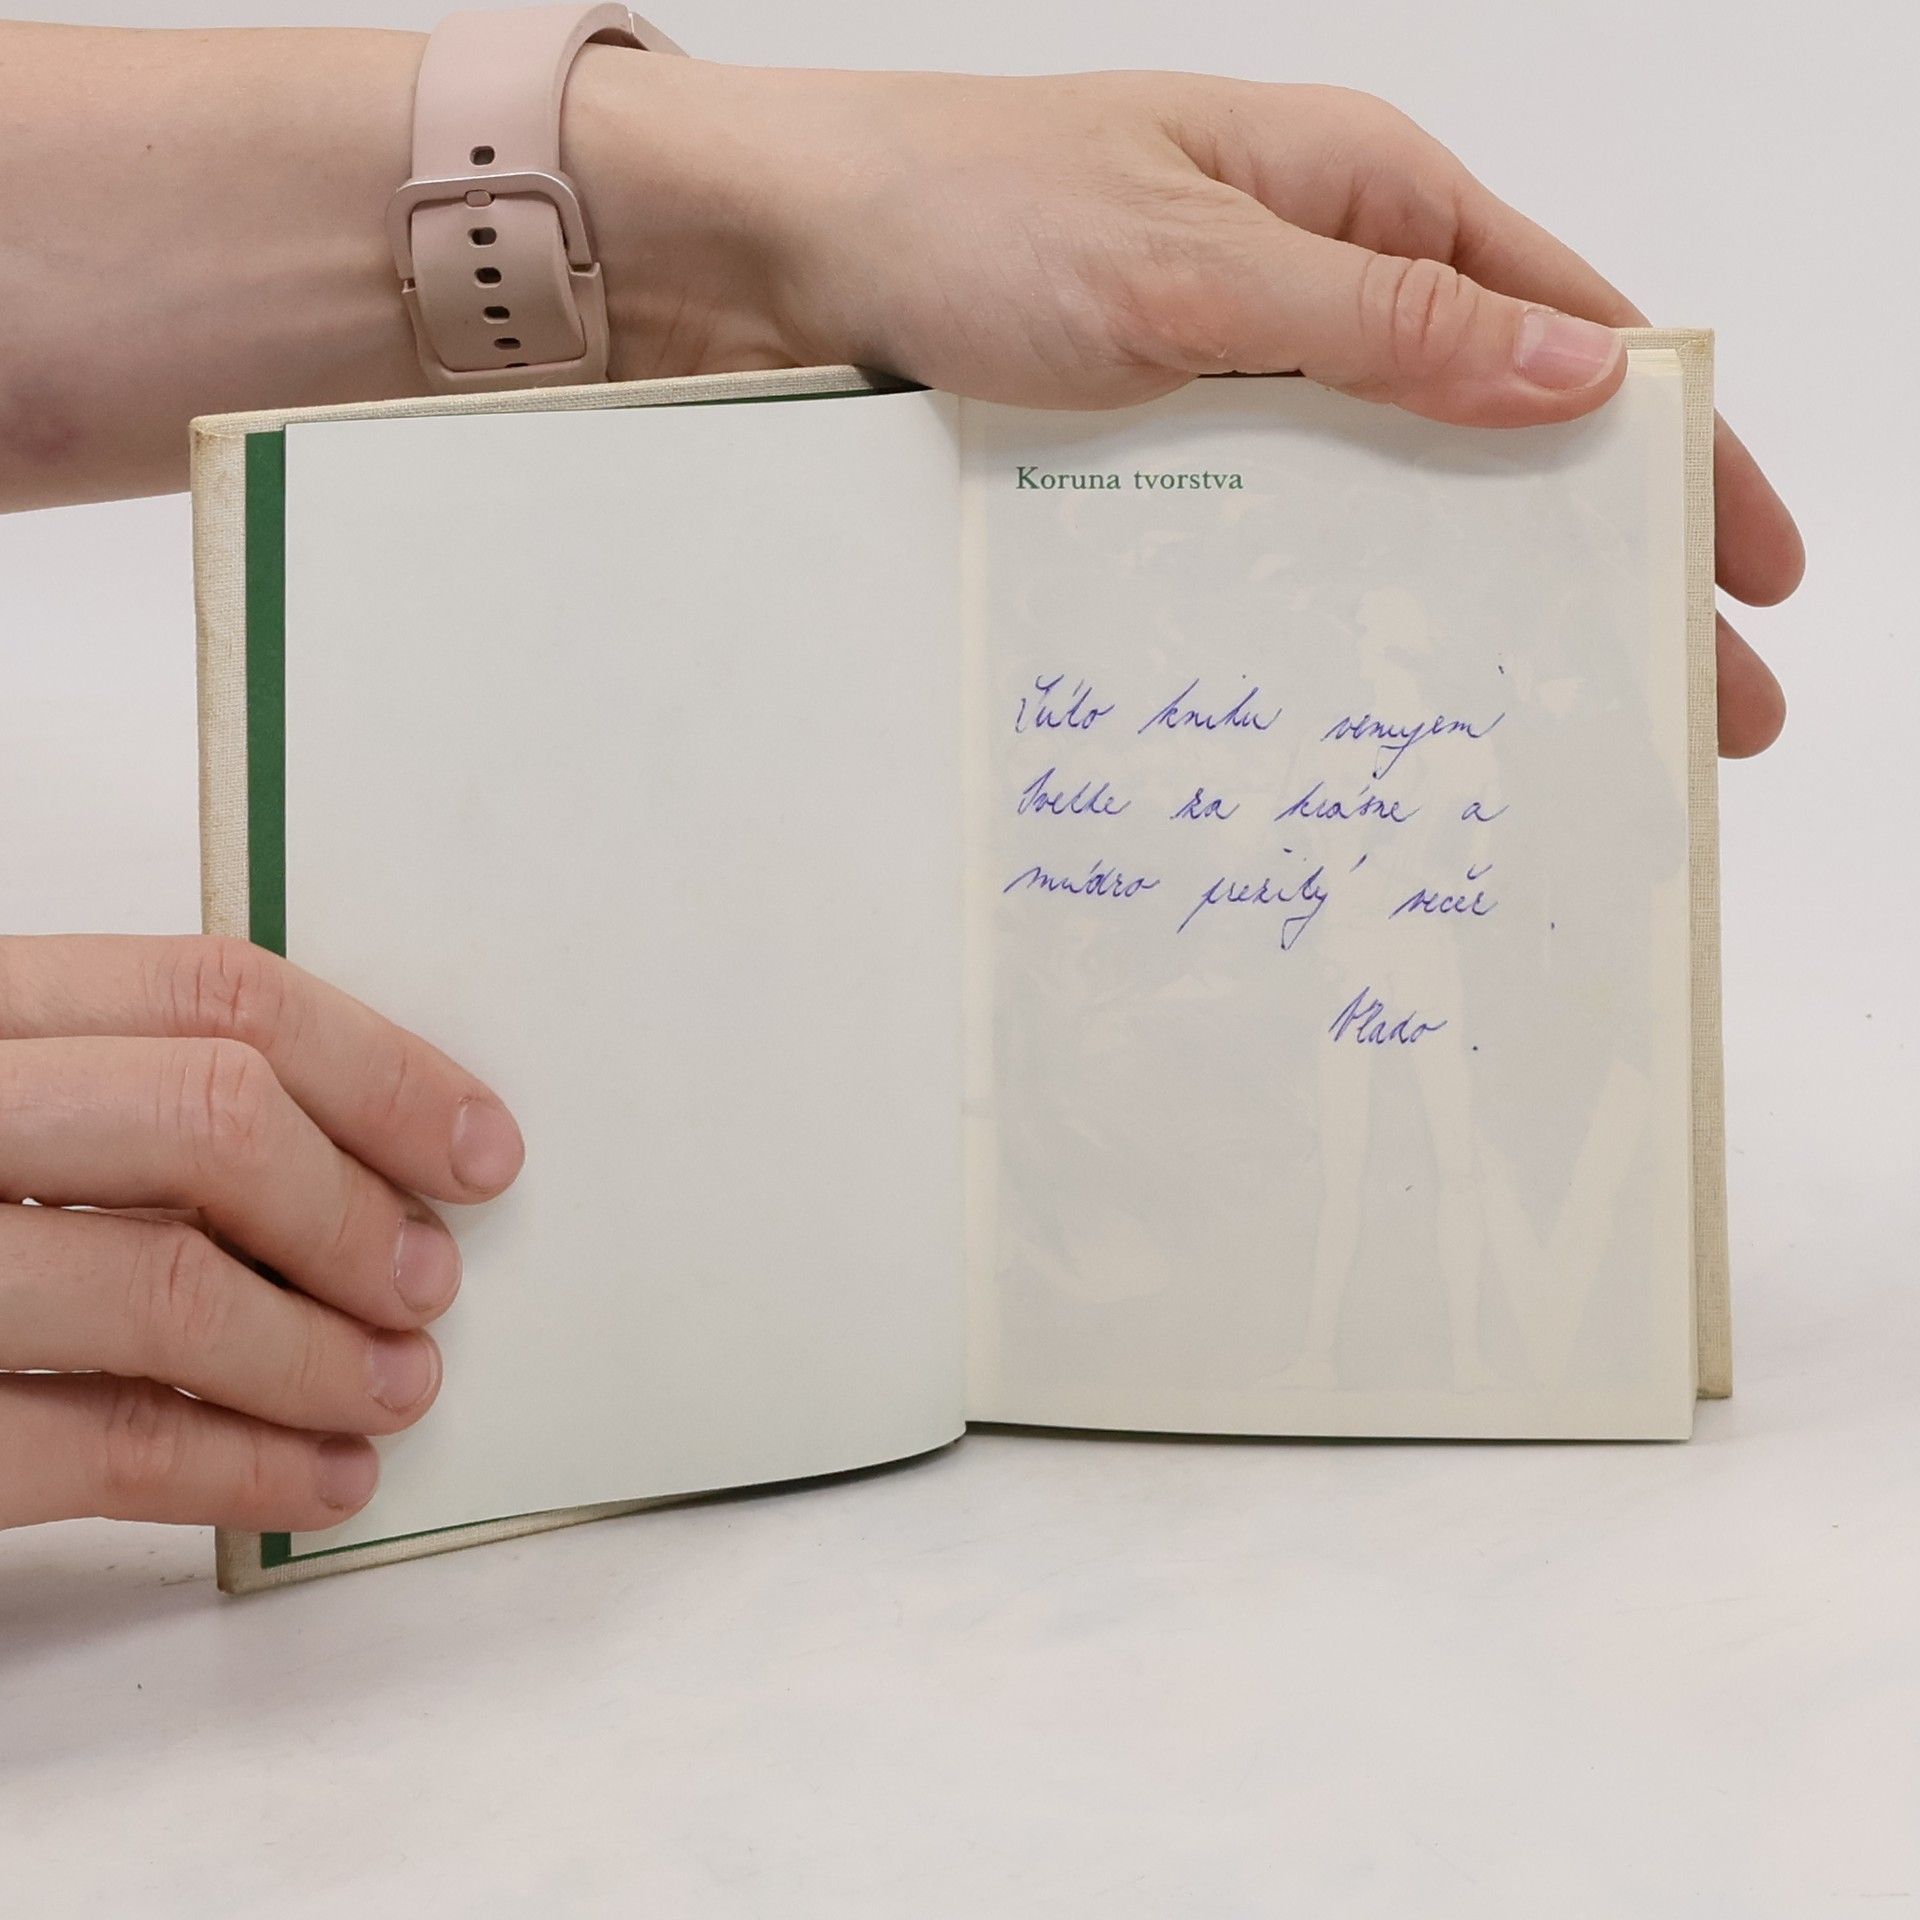 Koruna tvorstva
Túto knihu venujem
Svetke za krásne a
múdro prežitý večer .
Vlado .